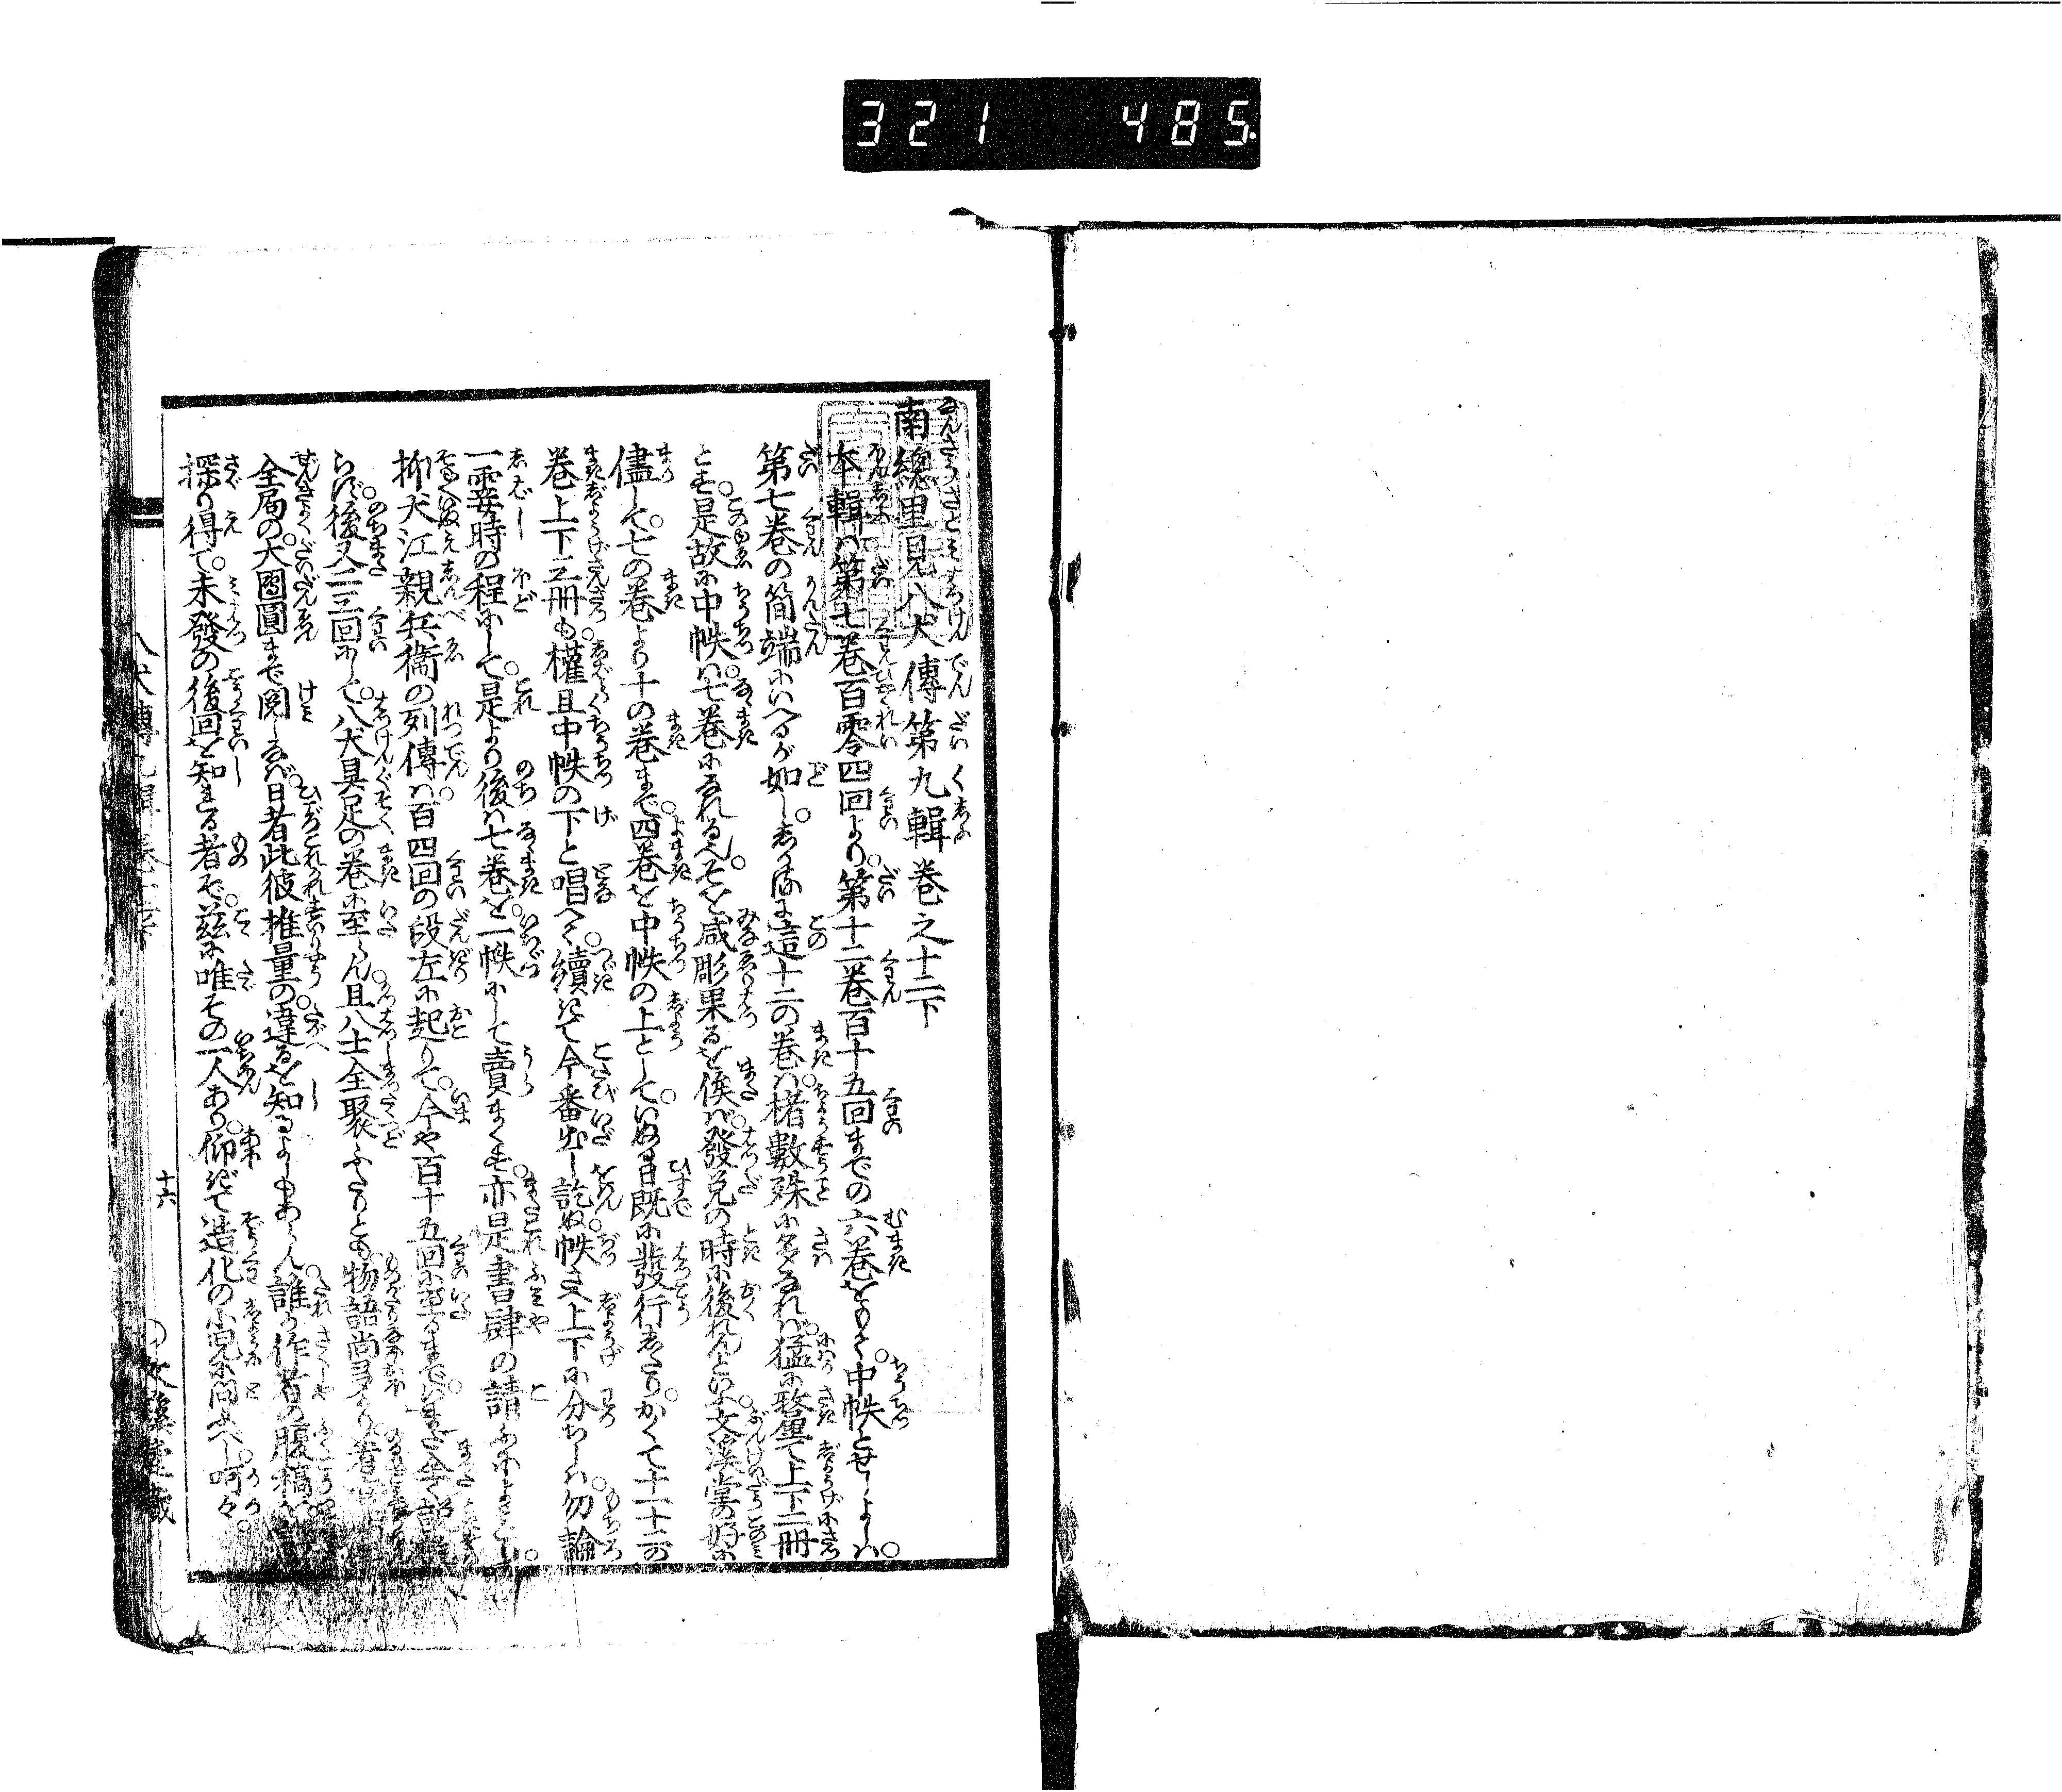 321 485.
南總里見八犬傳第九輯巻之十二下
本輯ハ第七巻百零四回より。第十二巻百十五回までの六巻をもて。中帙とせしよしハ。
第七巻の簡端にいへるが如し。しかるに這十二の巻ハ。楮數殊に多なれバ。猛に釐て上下二冊
とす。是故に中帙ハ。七巻になれるへ。そを咸彫果るを俟バ。發兌の時に後れんといふ。文溪堂の好に
儘して。七の巻より十の巻まで。四巻を中帙の上として。いぬる日既に發行したり。かくて十一十二の
巻上下三冊も。權且中帙の下と唱へて。續きて今番出し訖ぬ。帙を上下に分ちしハ。勿論
一霎時の程にして。是より後ハ七巻を。一帙にして賣まくす。亦是書肆の請ふに
抑犬江親兵衞の列傳ハ。百四回の段左に起りて。今や百十五回に至るまで。
らず。後又二三回にして。八犬具足の巻に至らん。且八士全聚ふたりとも。物語尚多かり。看
全局の。大團圓まで閲しなバ。目者此彼推量の。違るを知るよしもあらん。誰か作者の腹稿を
探り得て。未發の後回を知まる者ぞ。茲に唯その一人あり。仰ぎて造化の小兒に問ふべし。呵々。
十六